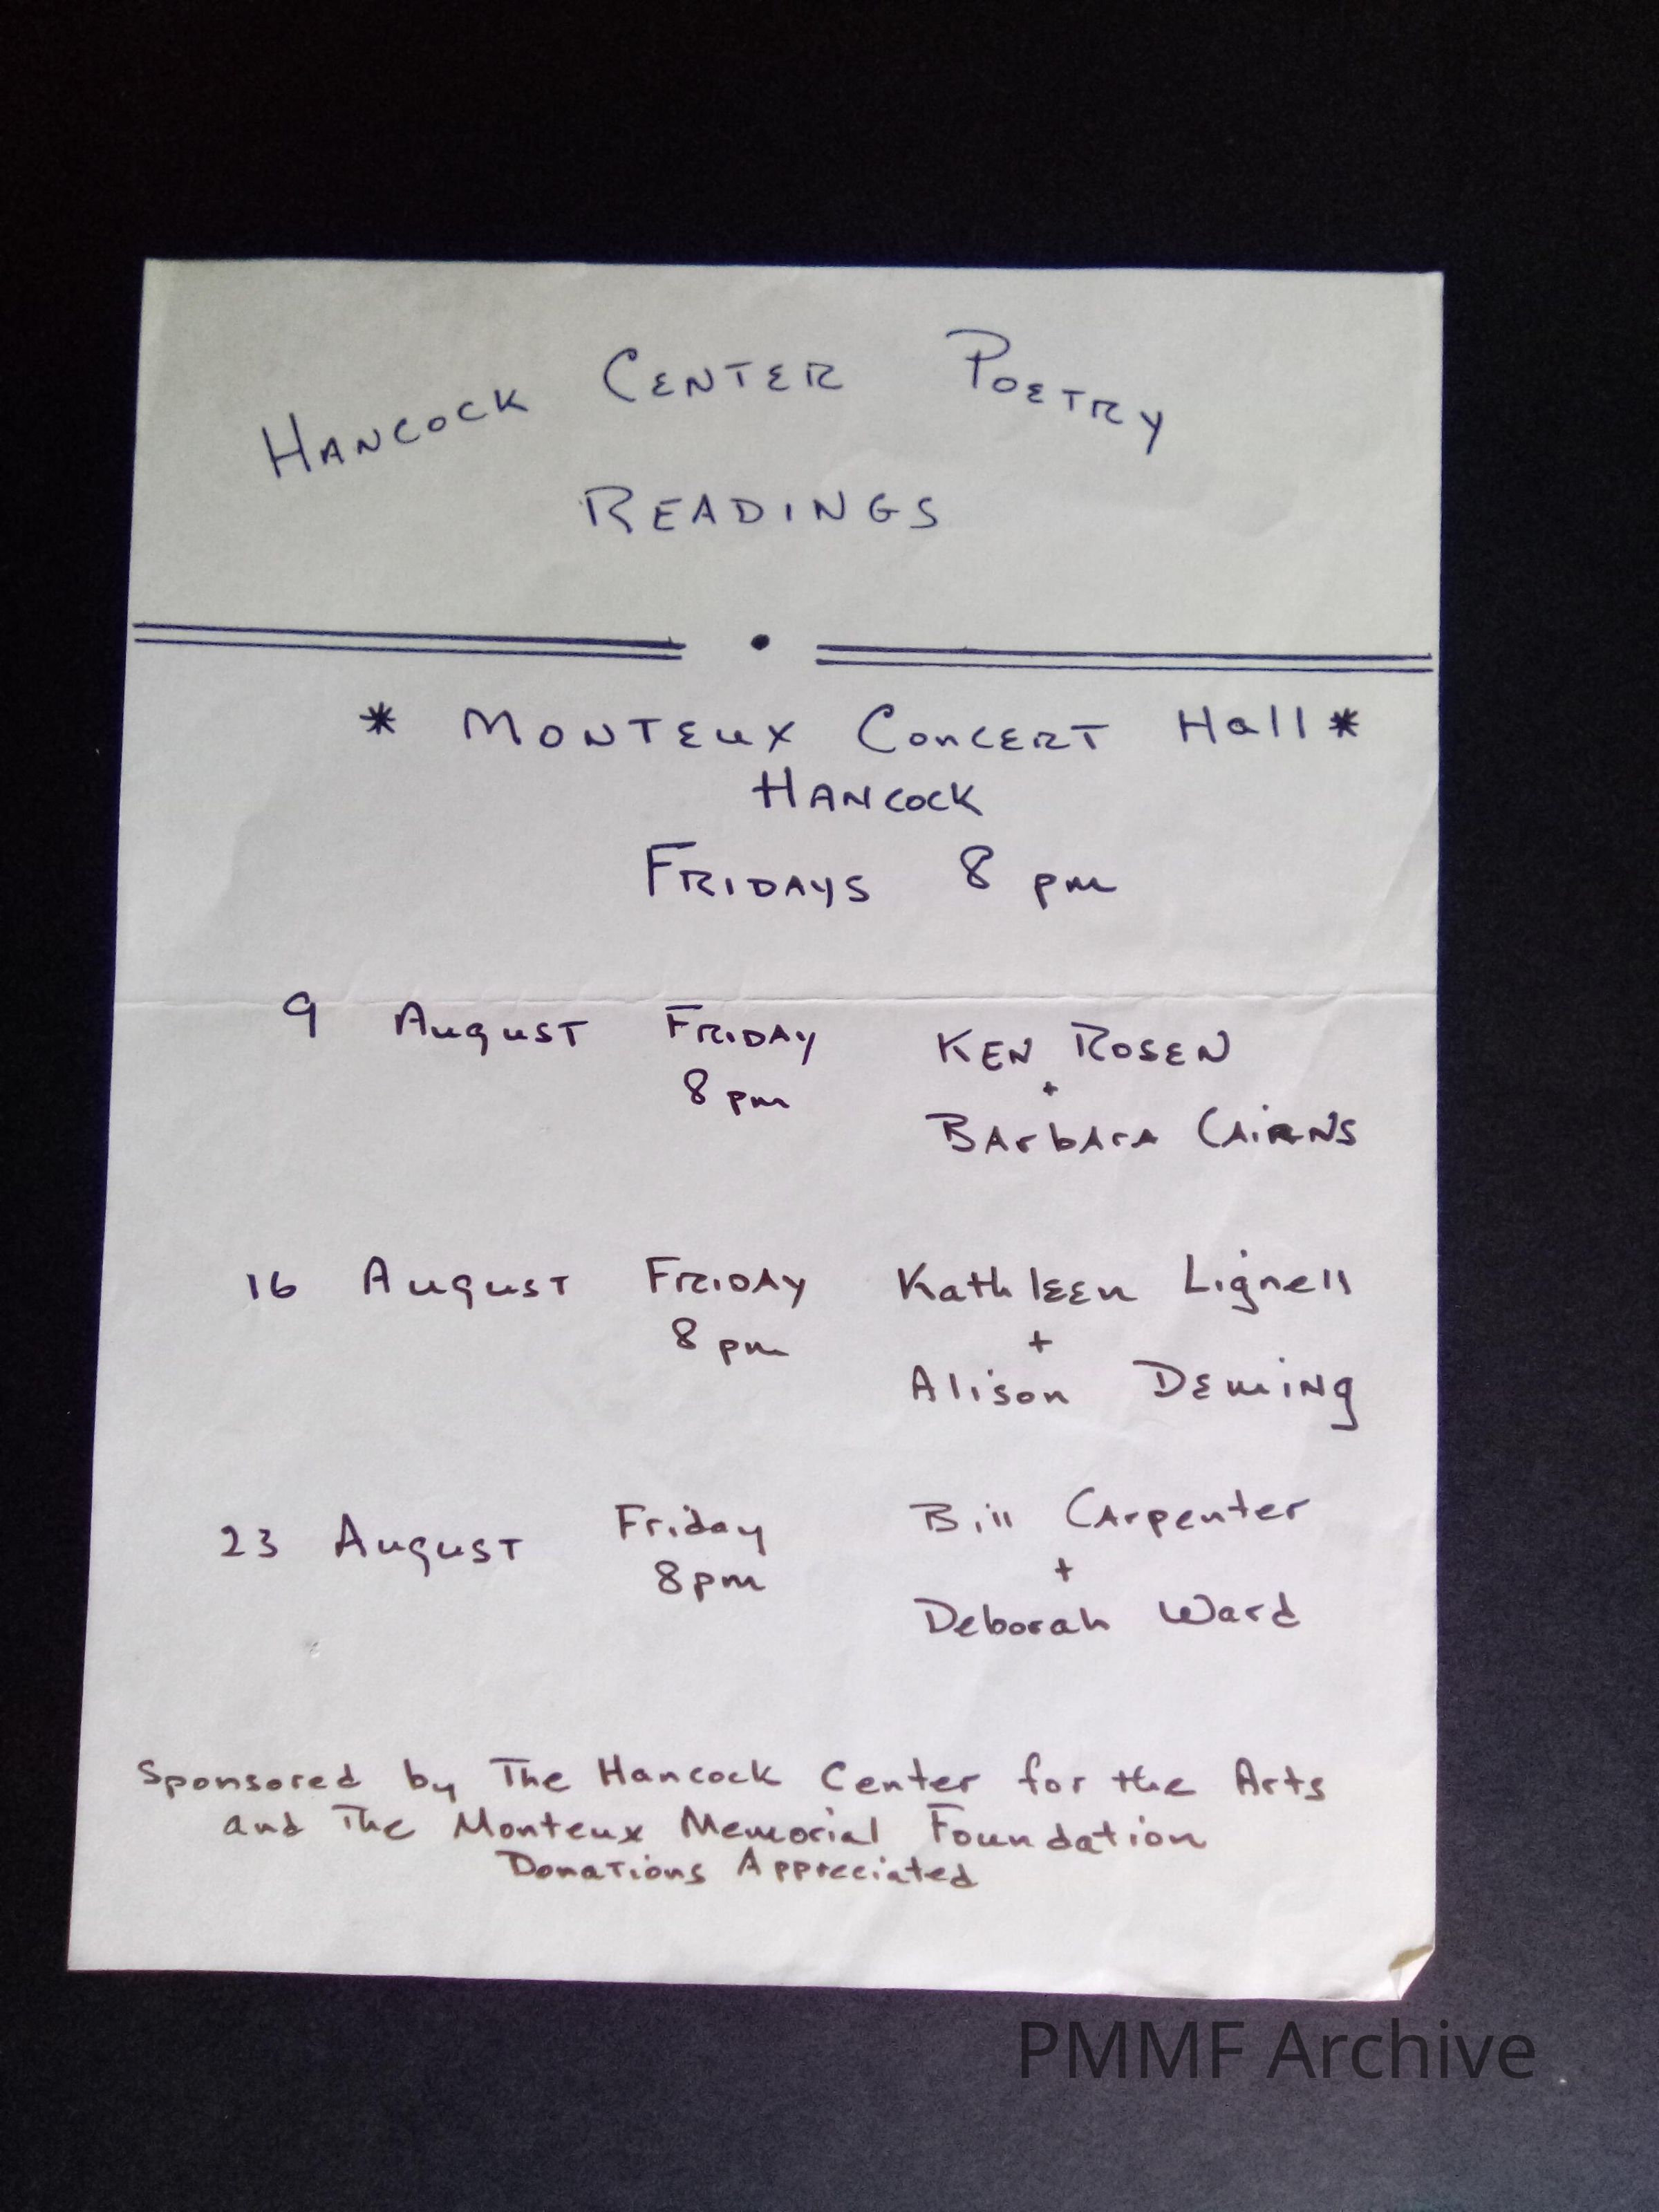 HANCOCK CENTER POETRY
READINGS
* MONTEUX CONCERT Hall *
HANCOCK
FRIDAYS 8 pm
9 AUGUST FRIDAY KEN ROSEN
8 pm +
BARBARA CAIRNS
16 AUGUST FRIDAY Kathleen Lignell
8 pm +
Alison DEMING
23 AUGUST Friday Bill Carpenter
8 pm +
Deborah Ward
Sponsored by The Hancock Center for the Arts
and The Monteux Memorial Foundation
Donations Appreciated
PMMF Archive